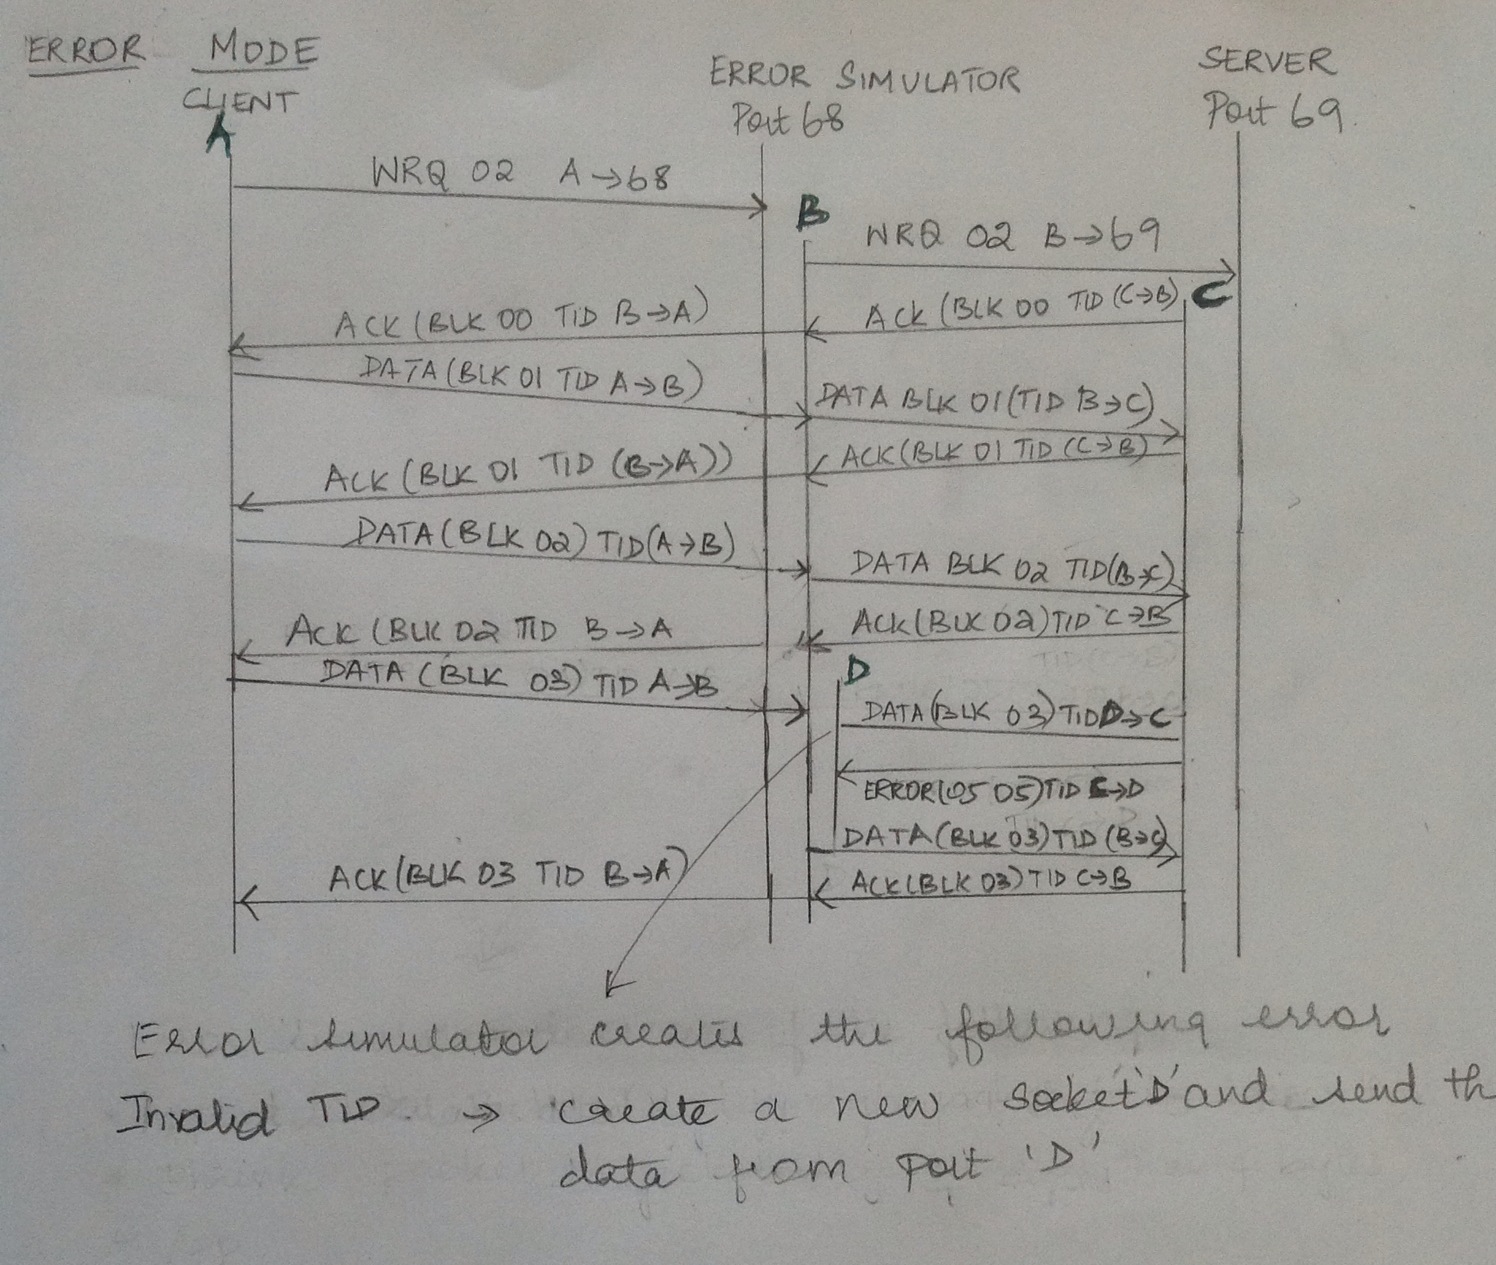 ERROR MODE
CLIENT
A
ERROR SIMULATOR
Port 68
SERVER
Port 69.
WRQ 02 A→68
B
WRQ 02 B→69
C
ACK (BLK 00 TID (C→B)
ACK (BLK 00 TID B→A)
DATA (BLK 01 TID A→B)
DATA BLK 01 (TID B→C)
ACK (BLK 01 TID (C→B)
ACK (BLK 01 TID (B→A))
DATA (BLK 02) TID (A→B)
DATA BLK 02 TID (B→C)
ACK (BLK 02) TID C→B
ACK (BLK 02 TID B→A
DATA (BLK 03) TID A→B
D
DATA (BLK 03) TID D→C
ERROR (05 05) TID C→D
DATA (BLK 03) TID (B→C)
ACK (BLK 03) TID C→B
ACK (BLK 03 TID B→A)
Error simulator creates the following error
Invalid TID. → create a new socket 'D' and send th
data from port 'D'